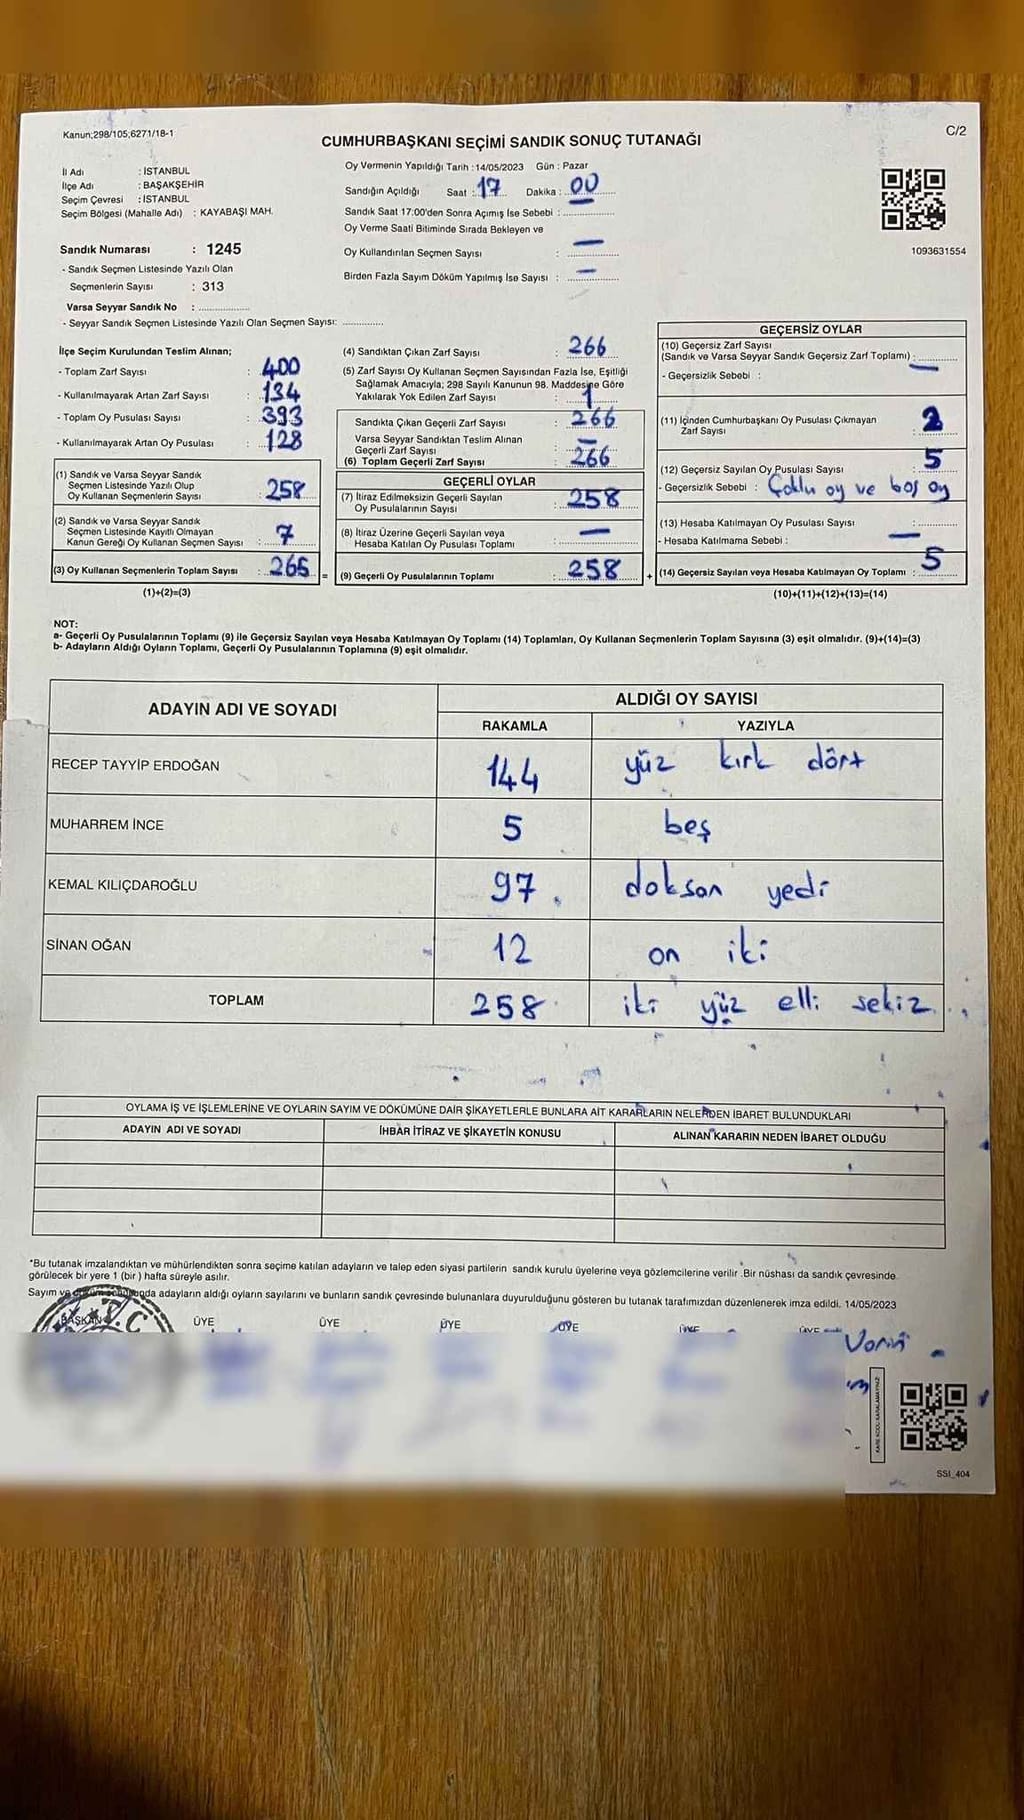 Kanun;298/105;6271/18-1
C/2
CUMHURBAŞKANI SEÇİMİ SANDIK SONUÇ TUTANAĞI
İl Adı : İSTANBUL
İlçe Adı : BAŞAKŞEHİR
Seçim Çevresi : İSTANBUL
Seçim Bölgesi (Mahalle Adı) : KAYABAŞI MAH.
Sandık Numarası : 1245
- Sandık Seçmen Listesinde Yazılı Olan
Seçmenlerin Sayısı : 313
Varsa Seyyar Sandık No : ................
- Seyyar Sandık Seçmen Listesinde Yazılı Olan Seçmen Sayısı: .............
Oy Vermenin Yapıldığı Tarih : 14/05/2023 Gün : Pazar
Sandığın Açıldığı Saat : 17 Dakika : 00
Sandık Saat 17:00'den Sonra Açımış İse Sebebi : ................
Oy Verme Saati Bitiminde Sırada Bekleyen ve
Oy Kullandırılan Seçmen Sayısı : —
Birden Fazla Sayım Döküm Yapılmış İse Sayısı : —
1093631554
İlçe Seçim Kurulundan Teslim Alınan;
- Toplam Zarf Sayısı : 400
- Kullanılmayarak Artan Zarf Sayısı : 134
- Toplam Oy Pusulası Sayısı : 393
- Kullanılmayarak Artan Oy Pusulası : 128
(1) Sandık ve Varsa Seyyar Sandık
Seçmen Listesinde Yazılı Olup
Oy Kullanan Seçmenlerin Sayısı : 258
(2) Sandık ve Varsa Seyyar Sandık
Seçmen Listesinde Kayıtlı Olmayan
Kanun Gereği Oy Kullanan Seçmen Sayısı : 7
(3) Oy Kullanan Seçmenlerin Toplam Sayısı : 265 =
(1)+(2)=(3)
(4) Sandıktan Çıkan Zarf Sayısı : 266
(5) Zarf Sayısı Oy Kullanan Seçmen Sayısından Fazla İse, Eşitliği
Sağlamak Amacıyla; 298 Sayılı Kanunun 98. Maddesine Göre
Yakılarak Yok Edilen Zarf Sayısı : 1
Sandıkta Çıkan Geçerli Zarf Sayısı : 266
Varsa Seyyar Sandıktan Teslim Alınan
Geçerli Zarf Sayısı : —
(6) Toplam Geçerli Zarf Sayısı : 266
GEÇERLİ OYLAR
(7) İtiraz Edilmeksizin Geçerli Sayılan
Oy Pusulalarının Sayısı : 258
(8) İtiraz Üzerine Geçerli Sayılan veya
Hesaba Katılan Oy Pusulası Toplamı : —
(9) Geçerli Oy Pusulalarının Toplamı : 258 +
GEÇERSİZ OYLAR
(10) Geçersiz Zarf Sayısı
(Sandık ve Varsa Seyyar Sandık Geçersiz Zarf Toplamı) : —
- Geçersizlik Sebebi :
(11) İçinden Cumhurbaşkanı Oy Pusulası Çıkmayan
Zarf Sayısı : 2
(12) Geçersiz Sayılan Oy Pusulası Sayısı : 5
- Geçersizlik Sebebi : Çoklu oy ve boş oy
(13) Hesaba Katılmayan Oy Pusulası Sayısı :
- Hesaba Katılmama Sebebi : —
(14) Geçersiz Sayılan veya Hesaba Katılmayan Oy Toplamı : 5
(10)+(11)+(12)+(13)=(14)
NOT:
a- Geçerli Oy Pusulalarının Toplamı (9) ile Geçersiz Sayılan veya Hesaba Katılmayan Oy Toplamı (14) Toplamları, Oy Kullanan Seçmenlerin Toplam Sayısına (3) eşit olmalıdır. (9)+(14)=(3)
b- Adayların Aldığı Oyların Toplamı, Geçerli Oy Pusulalarının Toplamına (9) eşit olmalıdır.
ADAYIN ADI VE SOYADI ALDIĞI OY SAYISI
RAKAMLA YAZIYLA
RECEP TAYYİP ERDOĞAN 144 yüz kırk dört
MUHARREM İNCE 5 beş
KEMAL KILIÇDAROĞLU 97 doksan yedi
SİNAN OĞAN 12 on iki
TOPLAM 258 iki yüz elli sekiz
OYLAMA İŞ VE İŞLEMLERİNE VE OYLARIN SAYIM VE DÖKÜMÜNE DAİR ŞİKAYETLERLE BUNLARA AİT KARARLARIN NELERDEN İBARET BULUNDUKLARI
ADAYIN ADI VE SOYADI İHBAR İTİRAZ VE ŞİKAYETİN KONUSU ALINAN KARARIN NEDEN İBARET OLDUĞU
*Bu tutanak imzalandıktan ve mühürlendikten sonra seçime katılan adayların ve talep eden siyasi partilerin sandık kurulu üyelerine veya gözlemcilerine verilir .Bir nüshası da sandık çevresinde
görülecek bir yere 1 (bir ) hafta süreyle asılır.
Sayım ve döküm sonucunda adayların aldığı oyların sayılarını ve bunların sandık çevresinde bulunanlara duyurulduğunu gösteren bu tutanak tarafımızdan düzenlenerek imza edildi. 14/05/2023
BAŞKAN ÜYE ÜYE ÜYE ÜYE ÜYE ÜYE
T.C
SSI_404